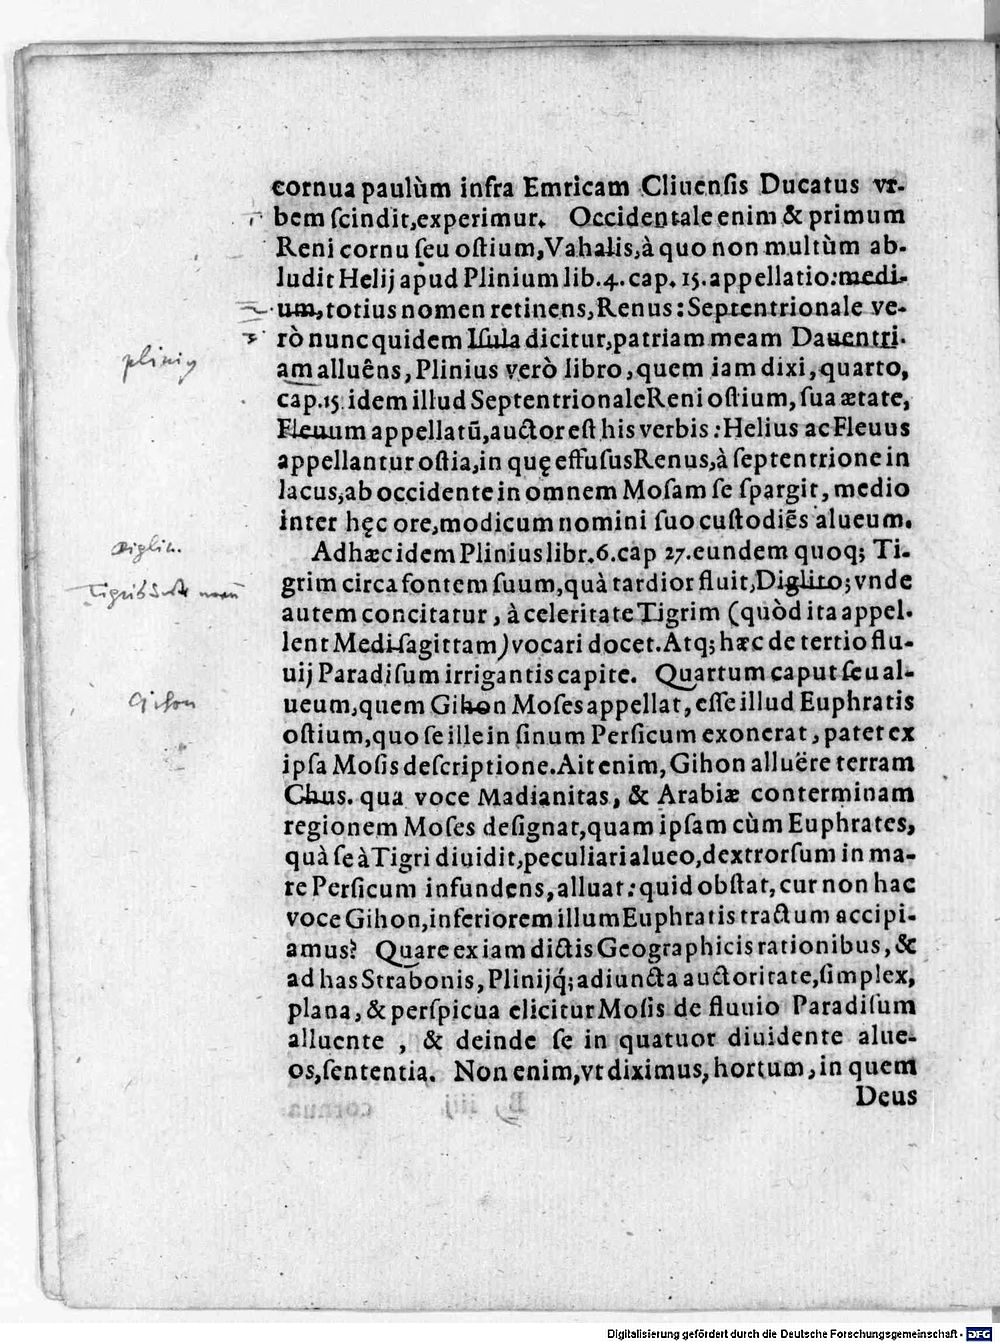 cornua paulùm infra Emricam Cliuenſis Ducatus vr-
bem ſcindit, experimur. Occidentale enim & primum
Reni cornu ſeu oſtium, Vahalis, à quo non multùm ab-
ludit Helij apud Plinium lib. 4. cap. 15. appellatio: medi-
um, totius nomen retinens, Renus: Septentrionale ve-
rò nunc quidem Iſula dicitur, patriam meam Dauentri-
am alluêns, Plinius verò libro, quem iam dixi, quarto,
cap. 15 idem illud Septentrionale Reni oſtium, ſua ætate,
Fleuum appellatũ, auctor eſt his verbis: Helius ac Fleuus
appellantur oſtia, in quę effuſus Renus, à ſeptentrione in
lacus, ab occidente in omnem Moſam ſe ſpargit, medio
inter hęc ore, modicum nomini ſuo cuſtodiẽs alueum.
Ad hæc idem Plinius libr. 6. cap 27. eundem quoq; Ti-
grim circa fontem ſuum, quà tardior fluit, Diglito; vnde
autem concitatur, à celeritate Tigrim (quòd ita appel-
lent Medi ſagittam) vocari docet. Atq; hæc de tertio flu-
uij Paradiſum irrigantis capite. Quartum caput ſeu al-
ueum, quem Gihon Moſes appellat, eſſe illud Euphratis
oſtium, quo ſe ille in ſinum Perſicum exonerat, patet ex
ipſa Moſis deſcriptione. Ait enim, Gihon alluëre terram
Chus. qua voce Madianitas, & Arabiæ conterminam
regionem Moſes deſignat, quam ipſam cùm Euphrates,
quà ſe à Tigri diuidit, peculiari alueo, dextrorſum in ma-
re Perſicum infundens, alluat: quid obſtat, cur non hac
voce Gihon, inferiorem illum Euphratis tractum accipi-
amus? Quare ex iam dictis Geographicis rationibus, &
ad has Strabonis, Plinijq́; adiuncta auctoritate, ſimplex,
plana, & perſpicua elicitur Moſis de fluuio Paradiſum
alluente, & deinde ſe in quatuor diuidente alue-
os, ſententia. Non enim, vt diximus, hortum, in quem
Deus
Gihon
Digitalisierung gefördert durch die Deutsche Forschungsgemeinschaft - DFG